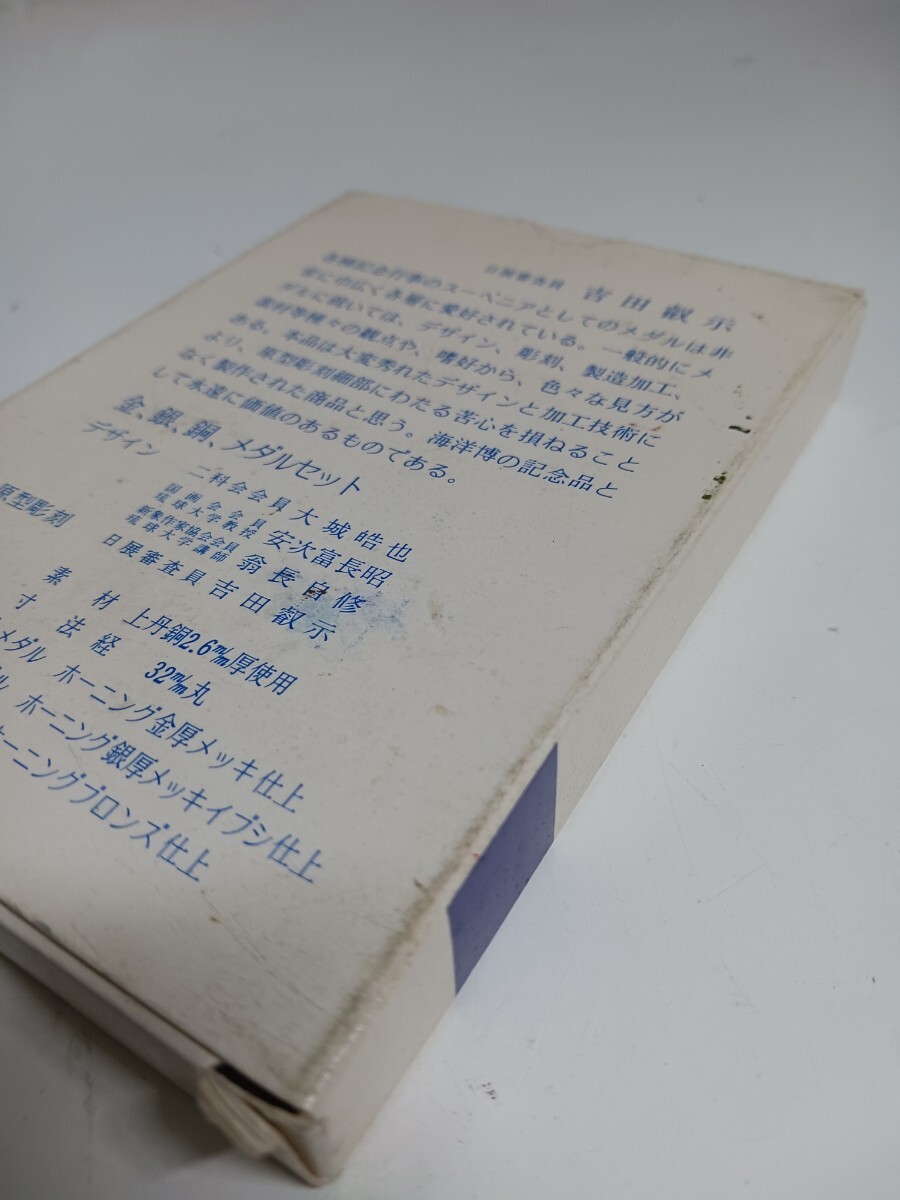 日展審査員 吉田叡示
各種記念行事のスーベニアとしてのメダルは非
常に巾広く各層に愛好されている。一般的にメ
ダルに就いては、デザイン、彫刻、製造加工、
素材等種々の観点や、嗜好から、色々な見方が
ある。本品は大変秀れたデザインと加工技術に
より、原型彫刻細部にわたる苦心を損ねること
なく製作された商品と思う。海洋博の記念品と
して永遠に価値のあるものである。
金、銀、銅、メダルセット
デザイン 二科会会員 大城皓也
国画会会員
琉球大学教授 安次富長昭
新象作家協会会員
琉球大学講師 翁長自修
原型彫刻 日展審査員 吉田叡示
素材 上丹銅2.6m/m厚使用
寸法 経 32m/m丸
メダル ホーニング金厚メッキ仕上
ル ホーニング銀厚メッキイブシ仕上
ホーニングブロンズ仕上